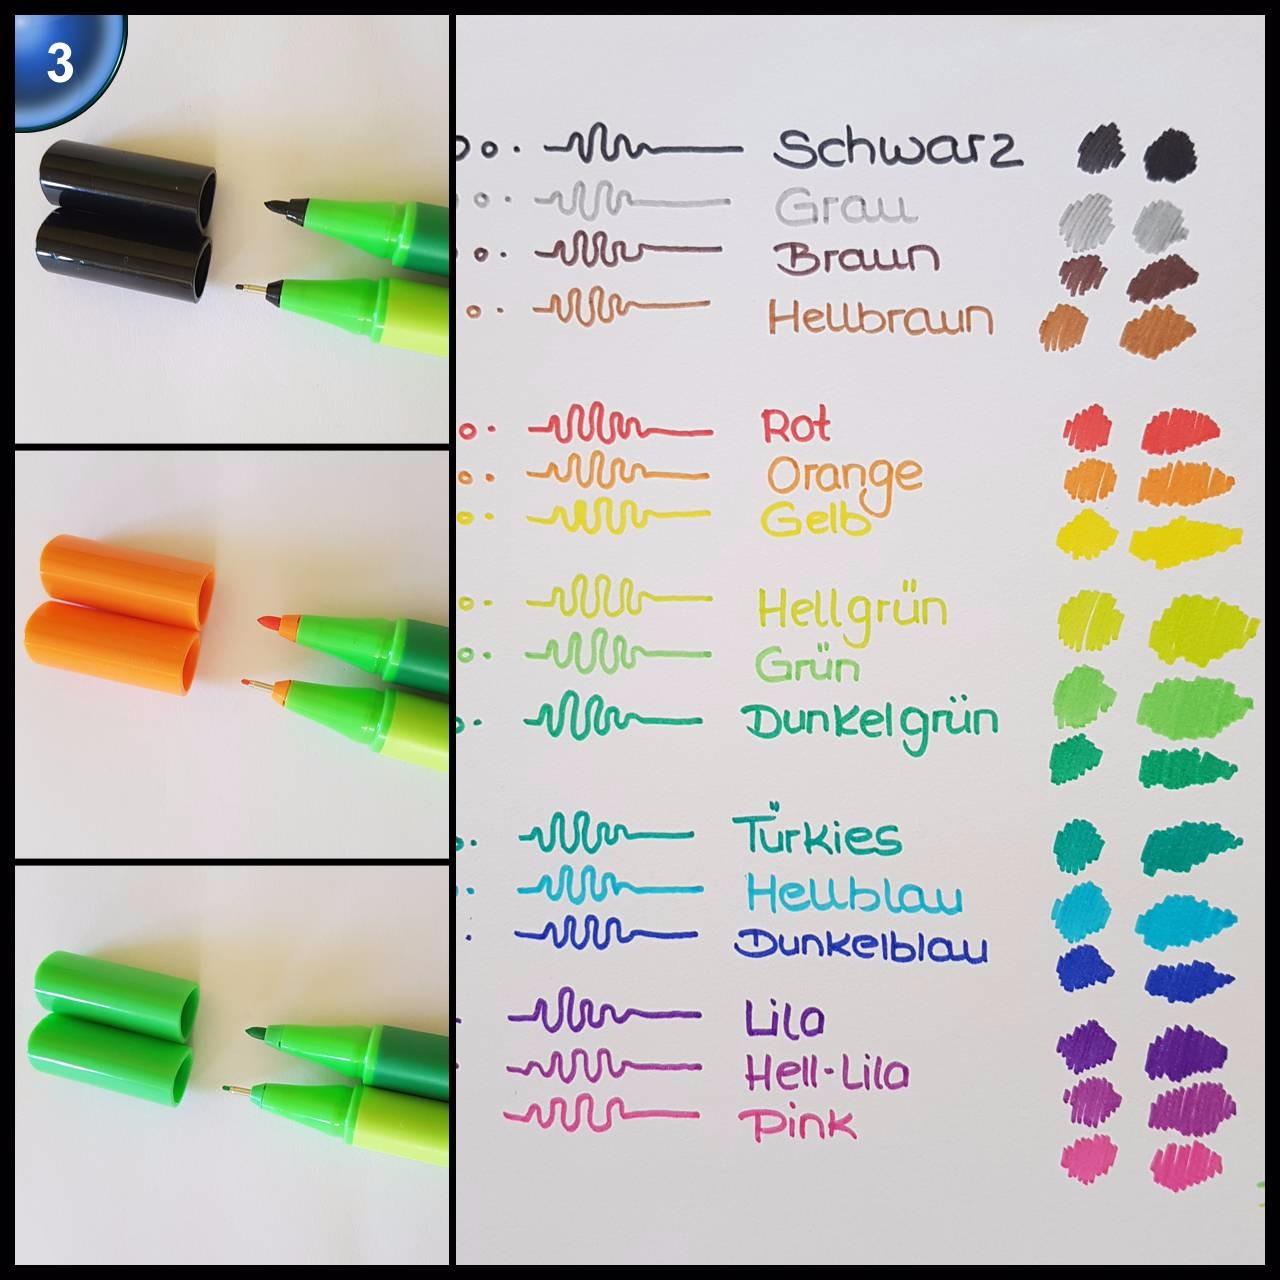 3
Schwarz
Grau
Braun
Hellbraun
Rot
Orange
Gelb
Hellgrün
Grün
Dunkelgrün
Türkies
Hellblau
Dunkelblau
Lila
Hell-Lila
Pink